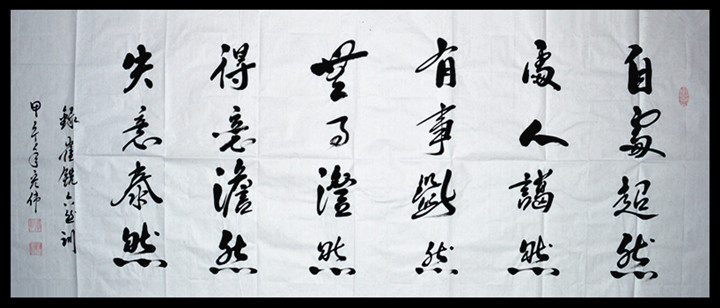 自處超然
處人藹然
有事斷然
無事澄然
得意澹然
失意泰然
錄崔銑六然訓
甲午年伟